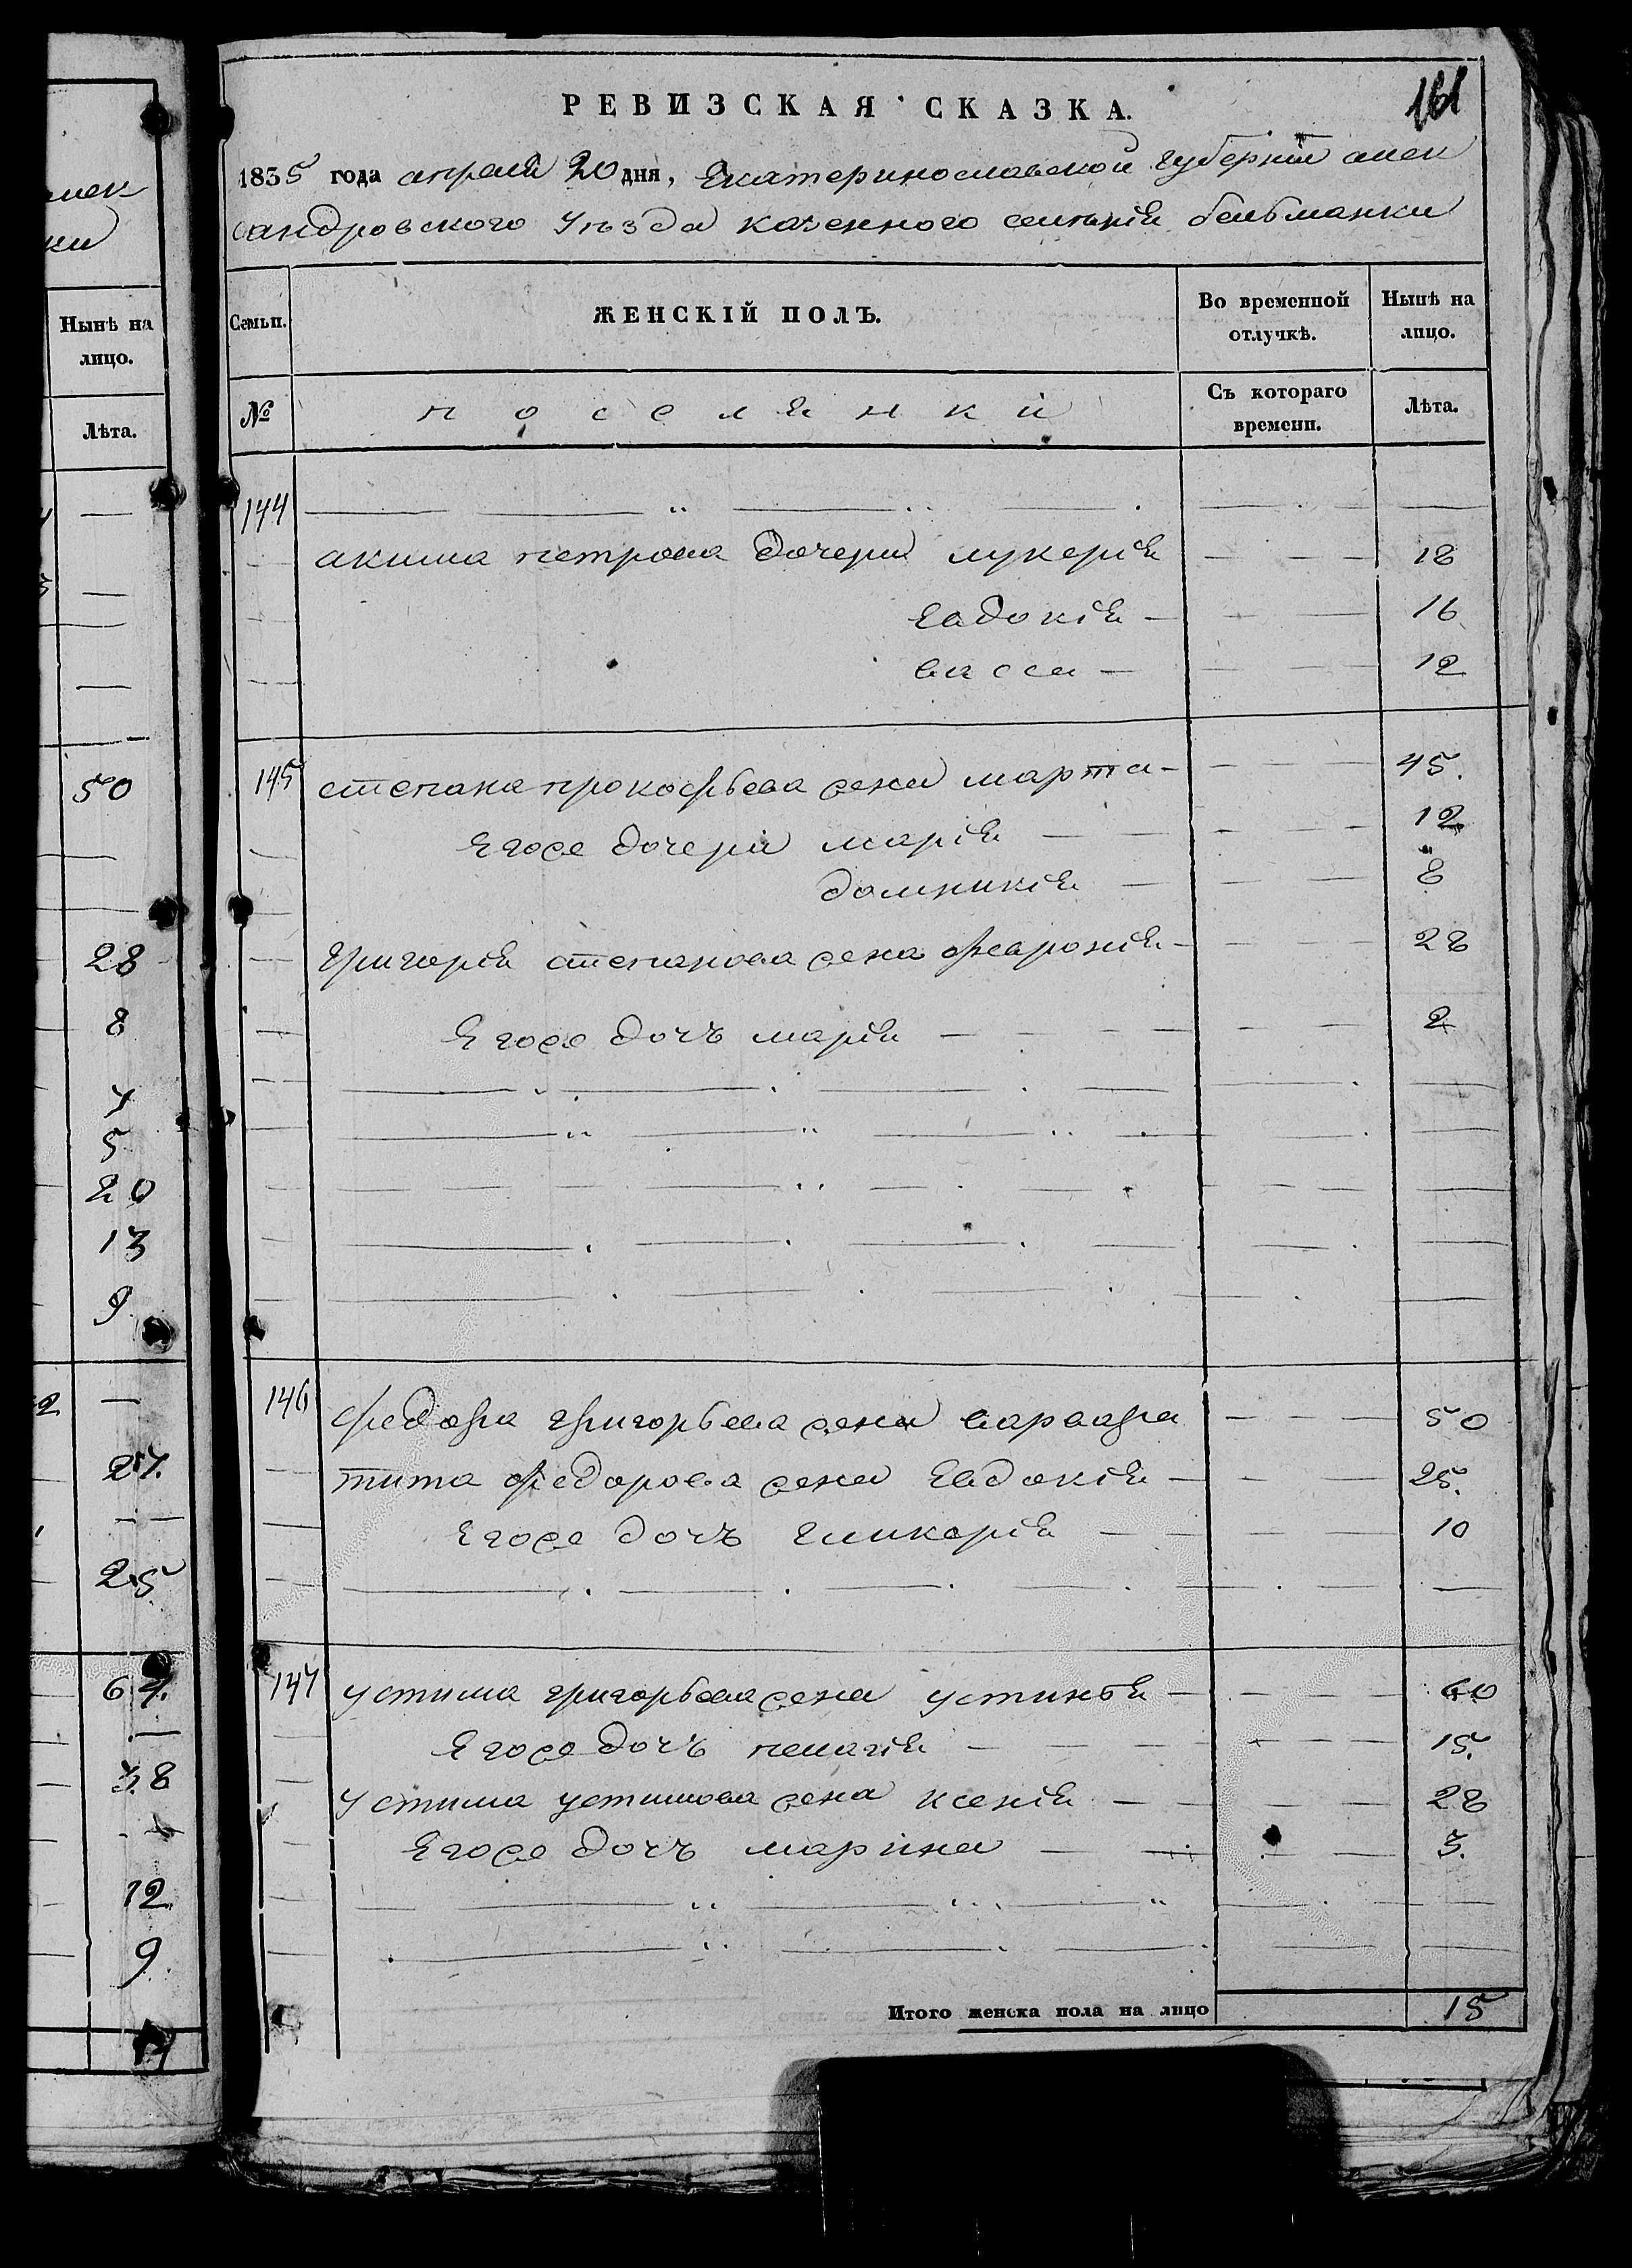 161
РЕВИЗСКАЯ СКАЗКА.
1835 года апреля 20 дня, Екатеринославской губернии алек
сандровского уѣзда казенного селѣнія бельманки
Семьи. ЖЕНСКІЙ ПОЛЪ. Во временной отлучкѣ. Нынѣ на лицо.
№ поселянки Съ котораго времени. Лѣта.
144
акима петрова дочери лукерія 18
Евдокія 16
васса 12
145 степана прокофьева жена марта 45.
Егоже дочери марія 12
домникія 8
григорія степанова жена февронія 28
Егоже дочъ марія 2
146 федора григорьева жена варвара 50
тита федорова жена Евдокія 25.
Егоже дочъ гликерія 10
147 устима григорьева жена устинья 60
Егоже дочъ пелагія 15.
устима устимова жена ксенія 28
Егоже дочъ марина 3.
Итого женска пола на лицо 15
Нынѣ на
лицо.
Лѣта.
50
28
8
5
20
13
9
27.
25
38
12
9